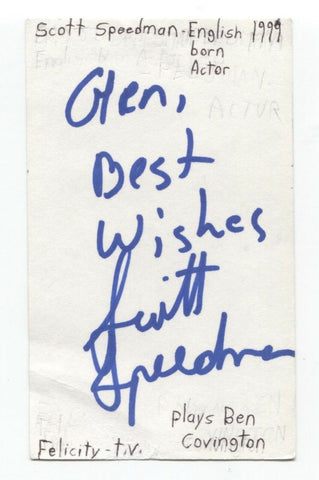 Scott Speedman - English 1999
born
Actor
Glen,
Best
Wishes
Scott
Speedman
plays Ben
Felicity - t.v. Covington